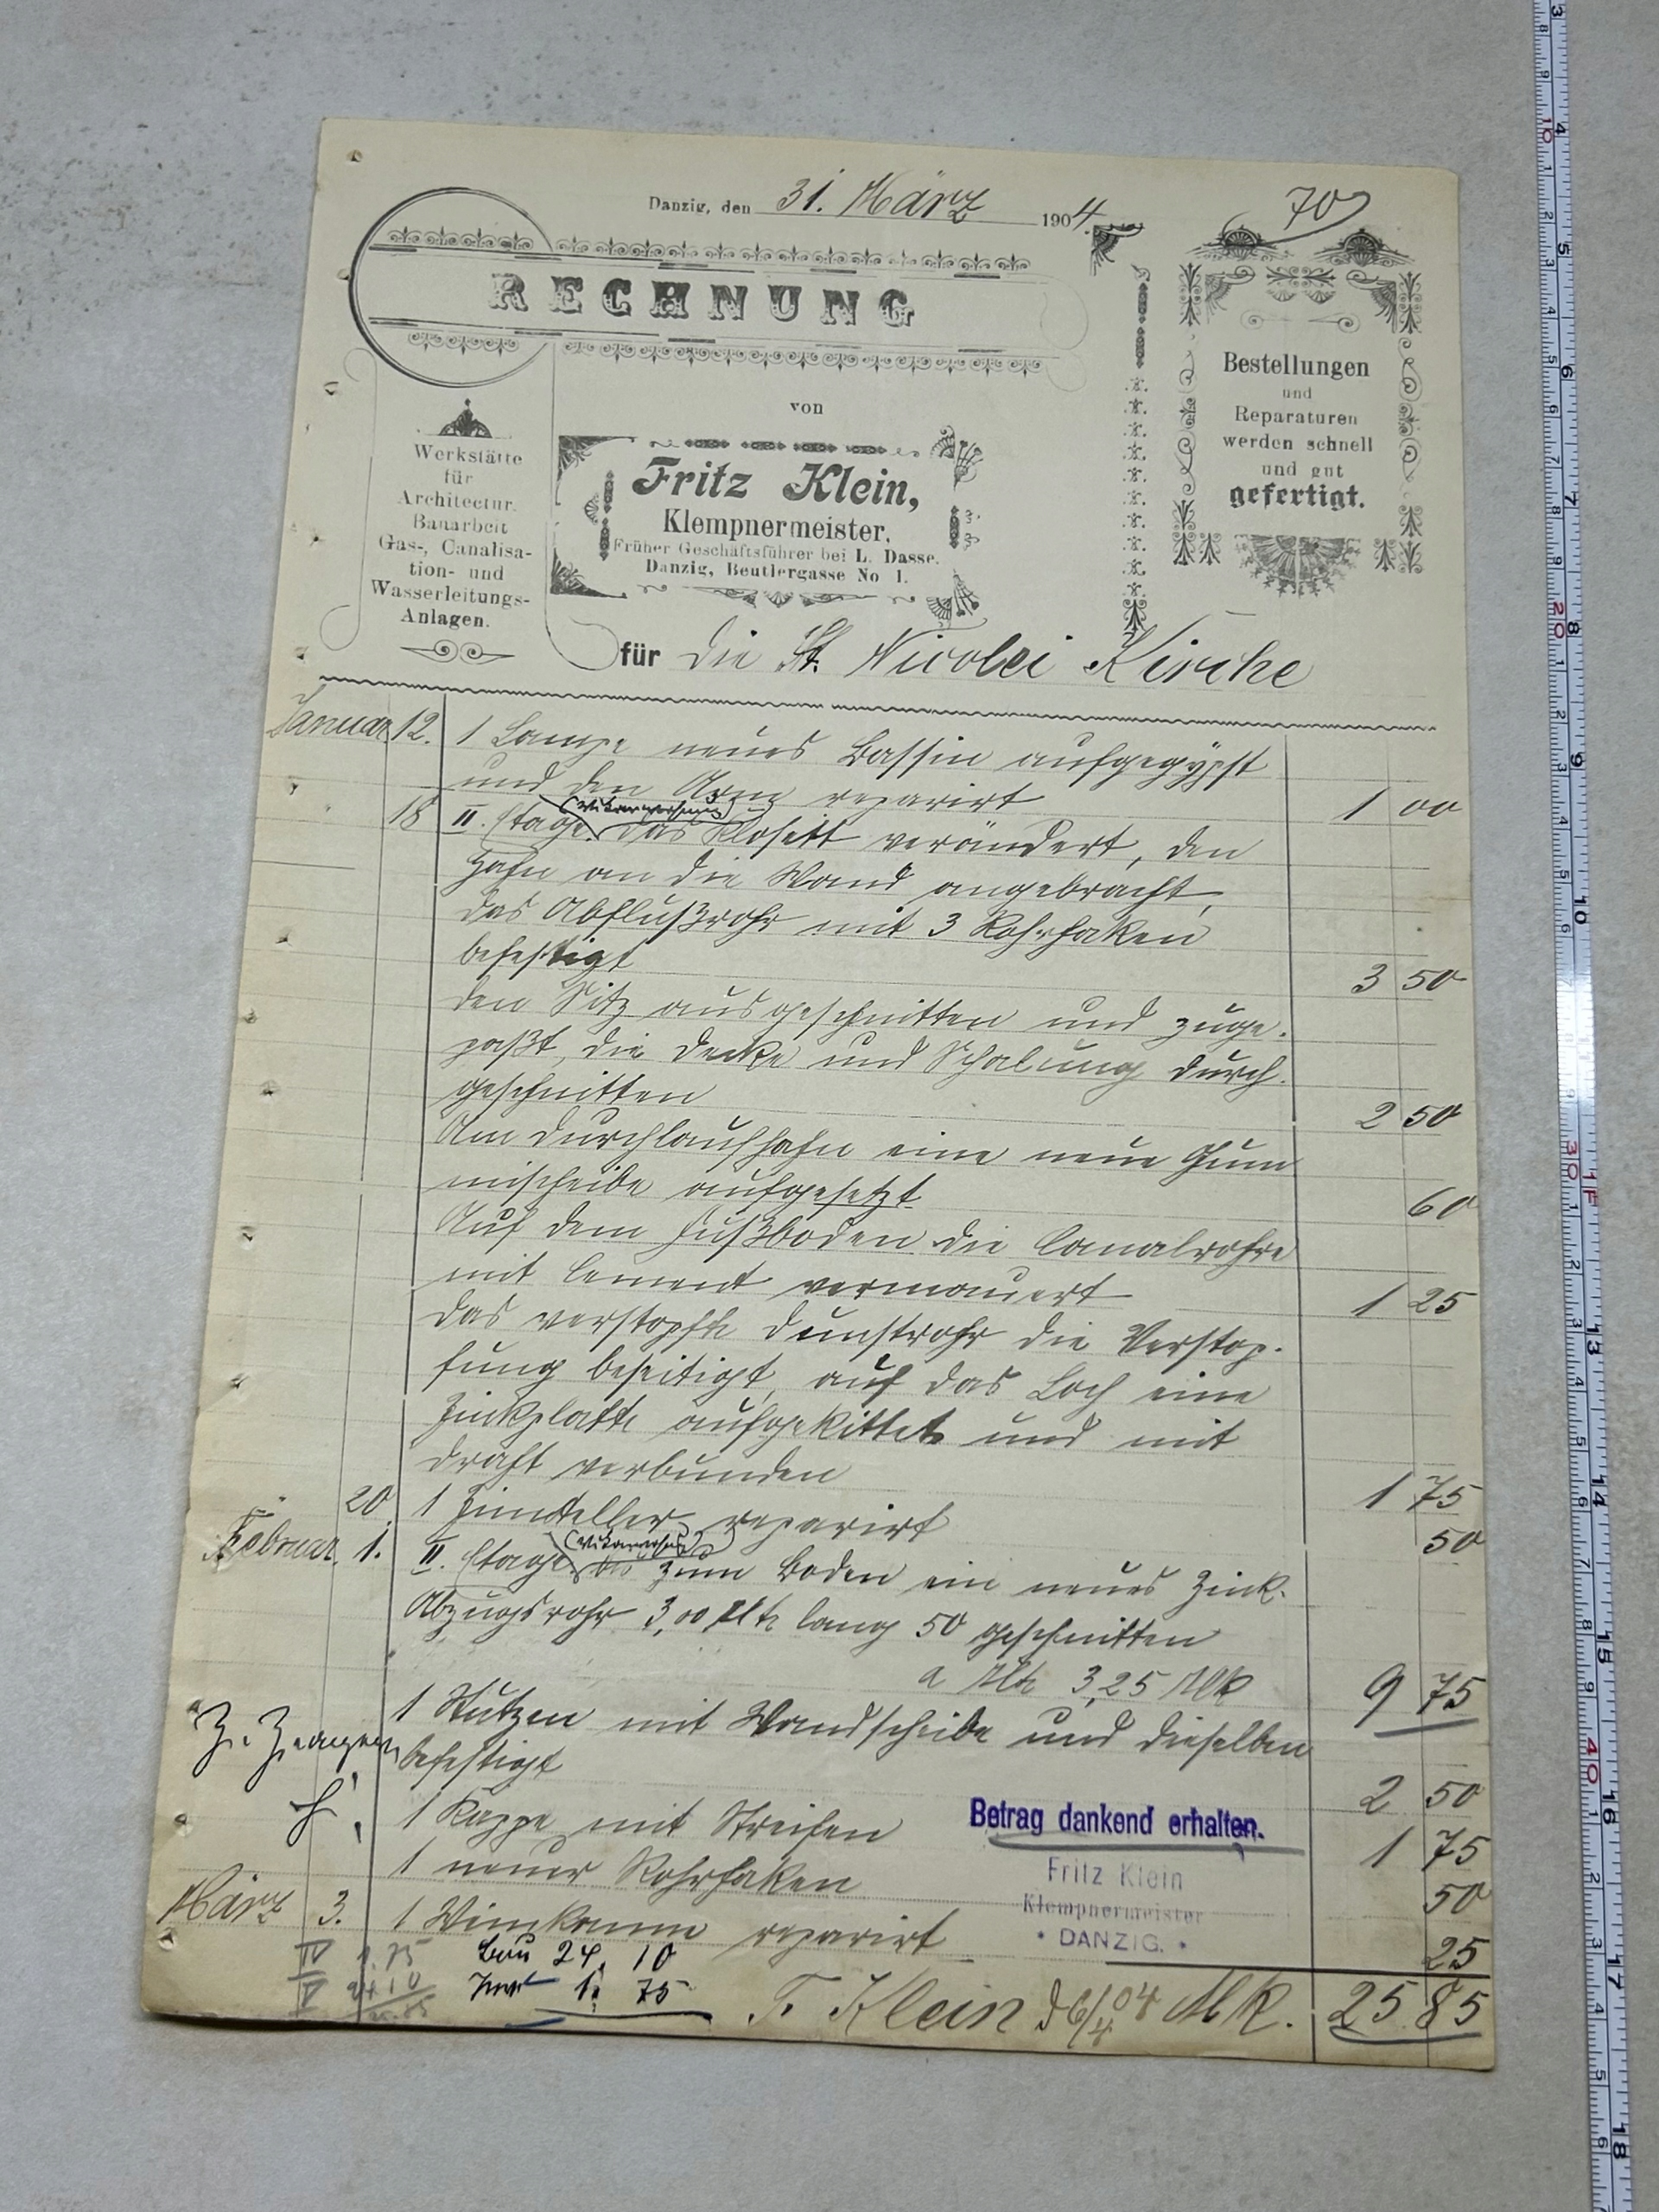 70
Danzig, den 31. März 1904.
RECHNUNG
von
Fritz Klein,
Klempnermeister,
Früher Geschäftsführer bei L. Dasse.
Danzig, Beutlergasse No 1.
Werkstätte
für
Architectur.
Bauarbeit
Gas-, Canalisa-
tion- und
Wasserleitungs-
Anlagen.
Bestellungen
und
Reparaturen
werden schnell
und gut
gefertigt.
für die St. Nicolei Kirche
Januar 12. 1 Lampe neues Bassin aufgegypst
und den Arm reparirt 1 00
18 II. Etage das Klosett verändert, den
Hahn an die Wand angebracht,
das Abflußrohr mit 3 Rohrhaken
befestigt 3 50
den Sitz ausgeschnitten und zuge-
paßt, die Decke und Schalung durch-
geschnitten 2 50
Am Durchlaufhahn eine neue Gum
mischeibe aufgesetzt 60
Auf dem Fußboden die Canalrohre
mit Cement vermauert 1 25
Das verstopfte Dunstrohr die Verstop-
fung beseitigt, auf das Loch eine
Zinkplatte aufgekittet und mit
Draht verbunden 1 75
20. 1 Zinnteller reparirt 50
Februar 1. II. Etage bis zum Boden ein neues Zink-
Abzugsrohr 3,00 Mtr lang 50 geschnitten
a Mtr 3,25 Mk 9 75
1 Stutzen mit Wandscheibe und dieselben
befestigt 2 50
1 Kappe mit Streifen 1 75
1 neuer Rohrhaken 50
März 3. 1 Weinkanne reparirt 25
Betrag dankend erhalten.
Fritz Klein
Klempnermeister
* DANZIG. *
IV 1.75
V 24 10
Bau 24. 10
Inv 1. 75
F. Klein d 6/4 04 Mk. 25 85